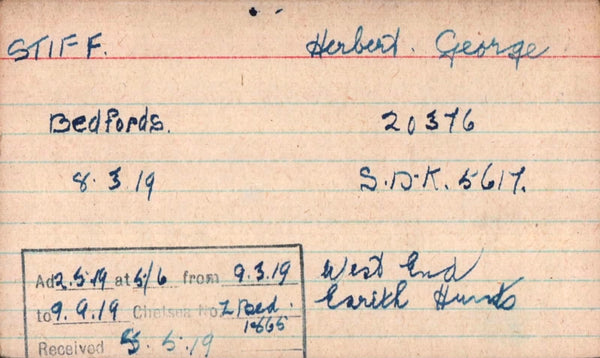 STIFF. Herbert. George
Bedfords. 20376
8. 3 19 S.D.K. 5617.
Ad 2.5.19 at 5/6 from 9.3.19
to 9.9.19 Chelsea No. 2/Bed.
1865
Received 5.5.19
West End
Earith Hunts